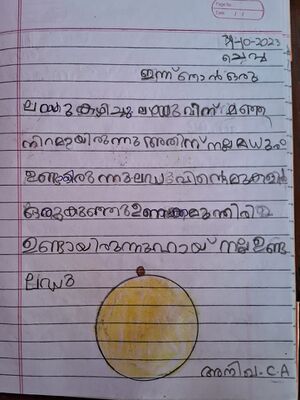 Page No.
Date
31-10-2023
ചൊവ്വ
ഇന്ന് ഞാൻ ഒരു
ലഡു കഴിച്ചു ലഡുവിന് മഞ്ഞ
നിറമായിരുന്നു അതിന് നല്ല മധുരം
ഉണ്ടായിരുന്നു ലഡുവിന്റെ മുകളിൽ
ഒരു കുഞ്ഞു ഉണക്കമുന്തിരി
ഉണ്ടായിരുന്നു ഹായ് നല്ല ഉണ്ട
ലഡു
അനിഖ. C.A